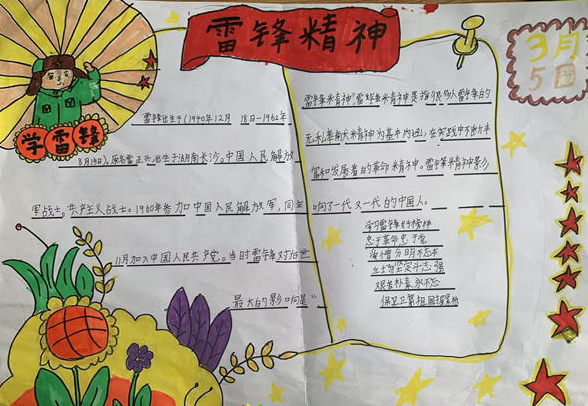 雷锋精神
3月
5日
学雷锋
雷锋出生于(1940年12月18日-1962年
8月15日),原名雷正兴,出生于湖南长沙。中国人民解放
军战士。共产主义战士。1960年参加中国人民解放军,同年
11月加入中国人民共产党。当时雷锋对后世
最大的影响是"
雷锋精神"雷锋精神是指 雷锋的
无私奉献精神为基本内涵,在实践中不断丰
富和发展着的革命精神。雷锋精神影
响了一代又一代的中国人。
学习雷锋好榜样
忠于革命忠于党
爱憎分明不忘本
立场坚定斗志强
艰苦朴素永不忘
保卫